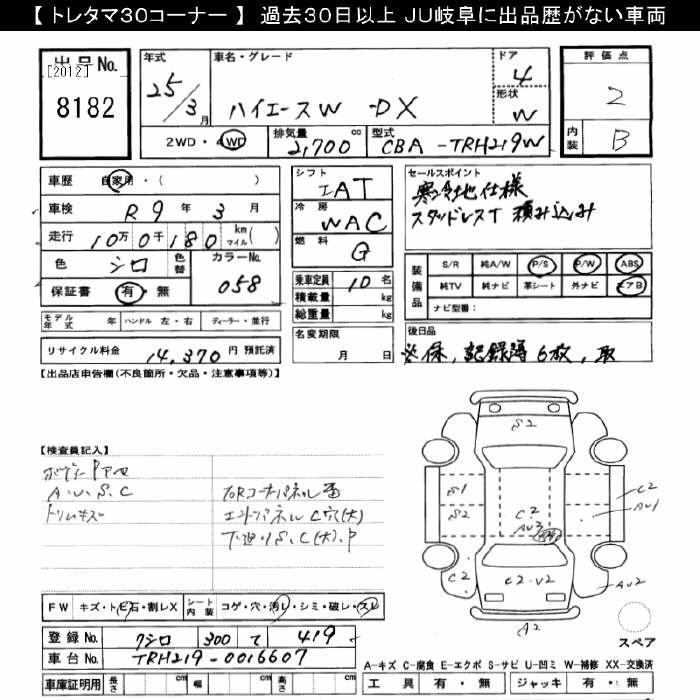 【 トレタマ30コーナー 】 過去30日以上 JU岐阜に出品歴がない車両
出品No.
[2012]
8182
年式
25/3月
車名・グレード
ハイエースW DX
ドア
4
形状
W
評価点
2
内装
B
2WD・4WD
排気量
2,700 cc
型式
CBA-TRH219W
車歴 自家用・( )
車検 R9年3月
走行 10万0千180 km マイル( )
色 シロ
色替
カラーNo.
058
保証書 有・無
シフト
IAT
冷房
WAC
燃料
G
乗車定員 10名
積載量 kg
総重量 kg
セールスポイント
寒冷地仕様
スタッドレスT 積み込み
装備品
S/R 純A/W P/S P/W ABS
純TV 純ナビ 革シート 外ナビ エアB
ナビ型番:
モデル年式 年 ハンドル 左・右 ディーラー・並行
リサイクル料金 14,370円 預託済
名変期限
月 日
後日品
保, 記録簿6枚, 取
【出品店申告欄(不良箇所・欠品・注意事項等)】
【検査員記入】
A.U.S.C
トリムキズ
RRコーナーパネル
エンドパネルC穴(大)
下廻りS.C(大).P
S2
S1
S2
C2
AU3
C2
AU1
C2
C2・U2
AU2
A2
スペア
FW キズ・トビ石・割レX シート内装 コゲ・穴・汚レ・シミ・破レ・スレ
登録No. 300 て 419
車台No. TRH219-0016607
車庫証明用 長さ cm 幅 cm 高さ cm
A-キズ C-腐食 E-エクボ S-サビ U-凹ミ W-補修 XX-交換済
工具 有・無 ジャッキ 有・無